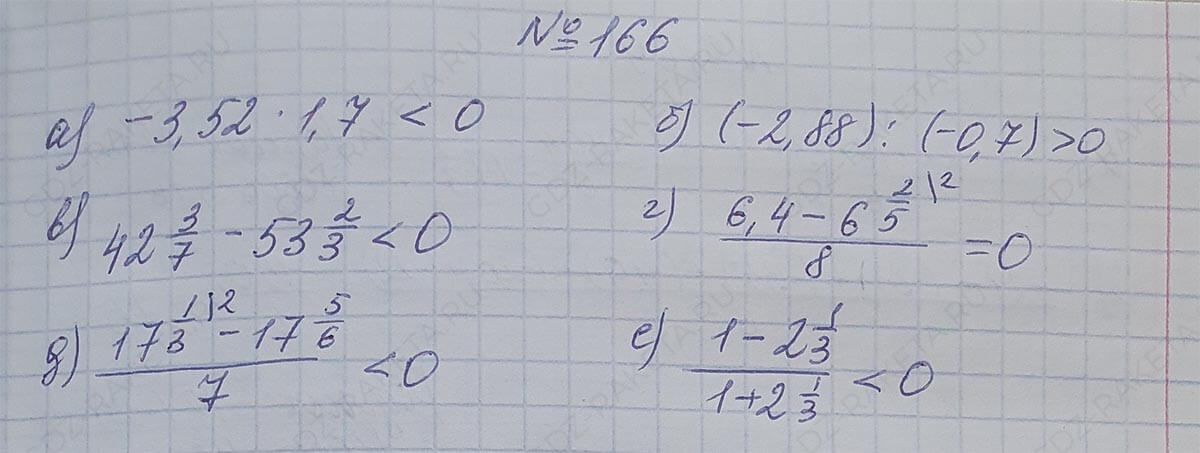 № 166
а) -3,52 · 1,7 < 0
б) (-2,88) : (-0,7) > 0
в) 42 3/7 - 53 2/3 < 0
г) (6,4 - 6 2/5 \2) / 8 = 0
д) (17 1/3 \2 - 17 5/6) / 7 < 0
е) (1 - 2 1/3) / (1 + 2 1/3) < 0
GDZ-RAKETA.RU